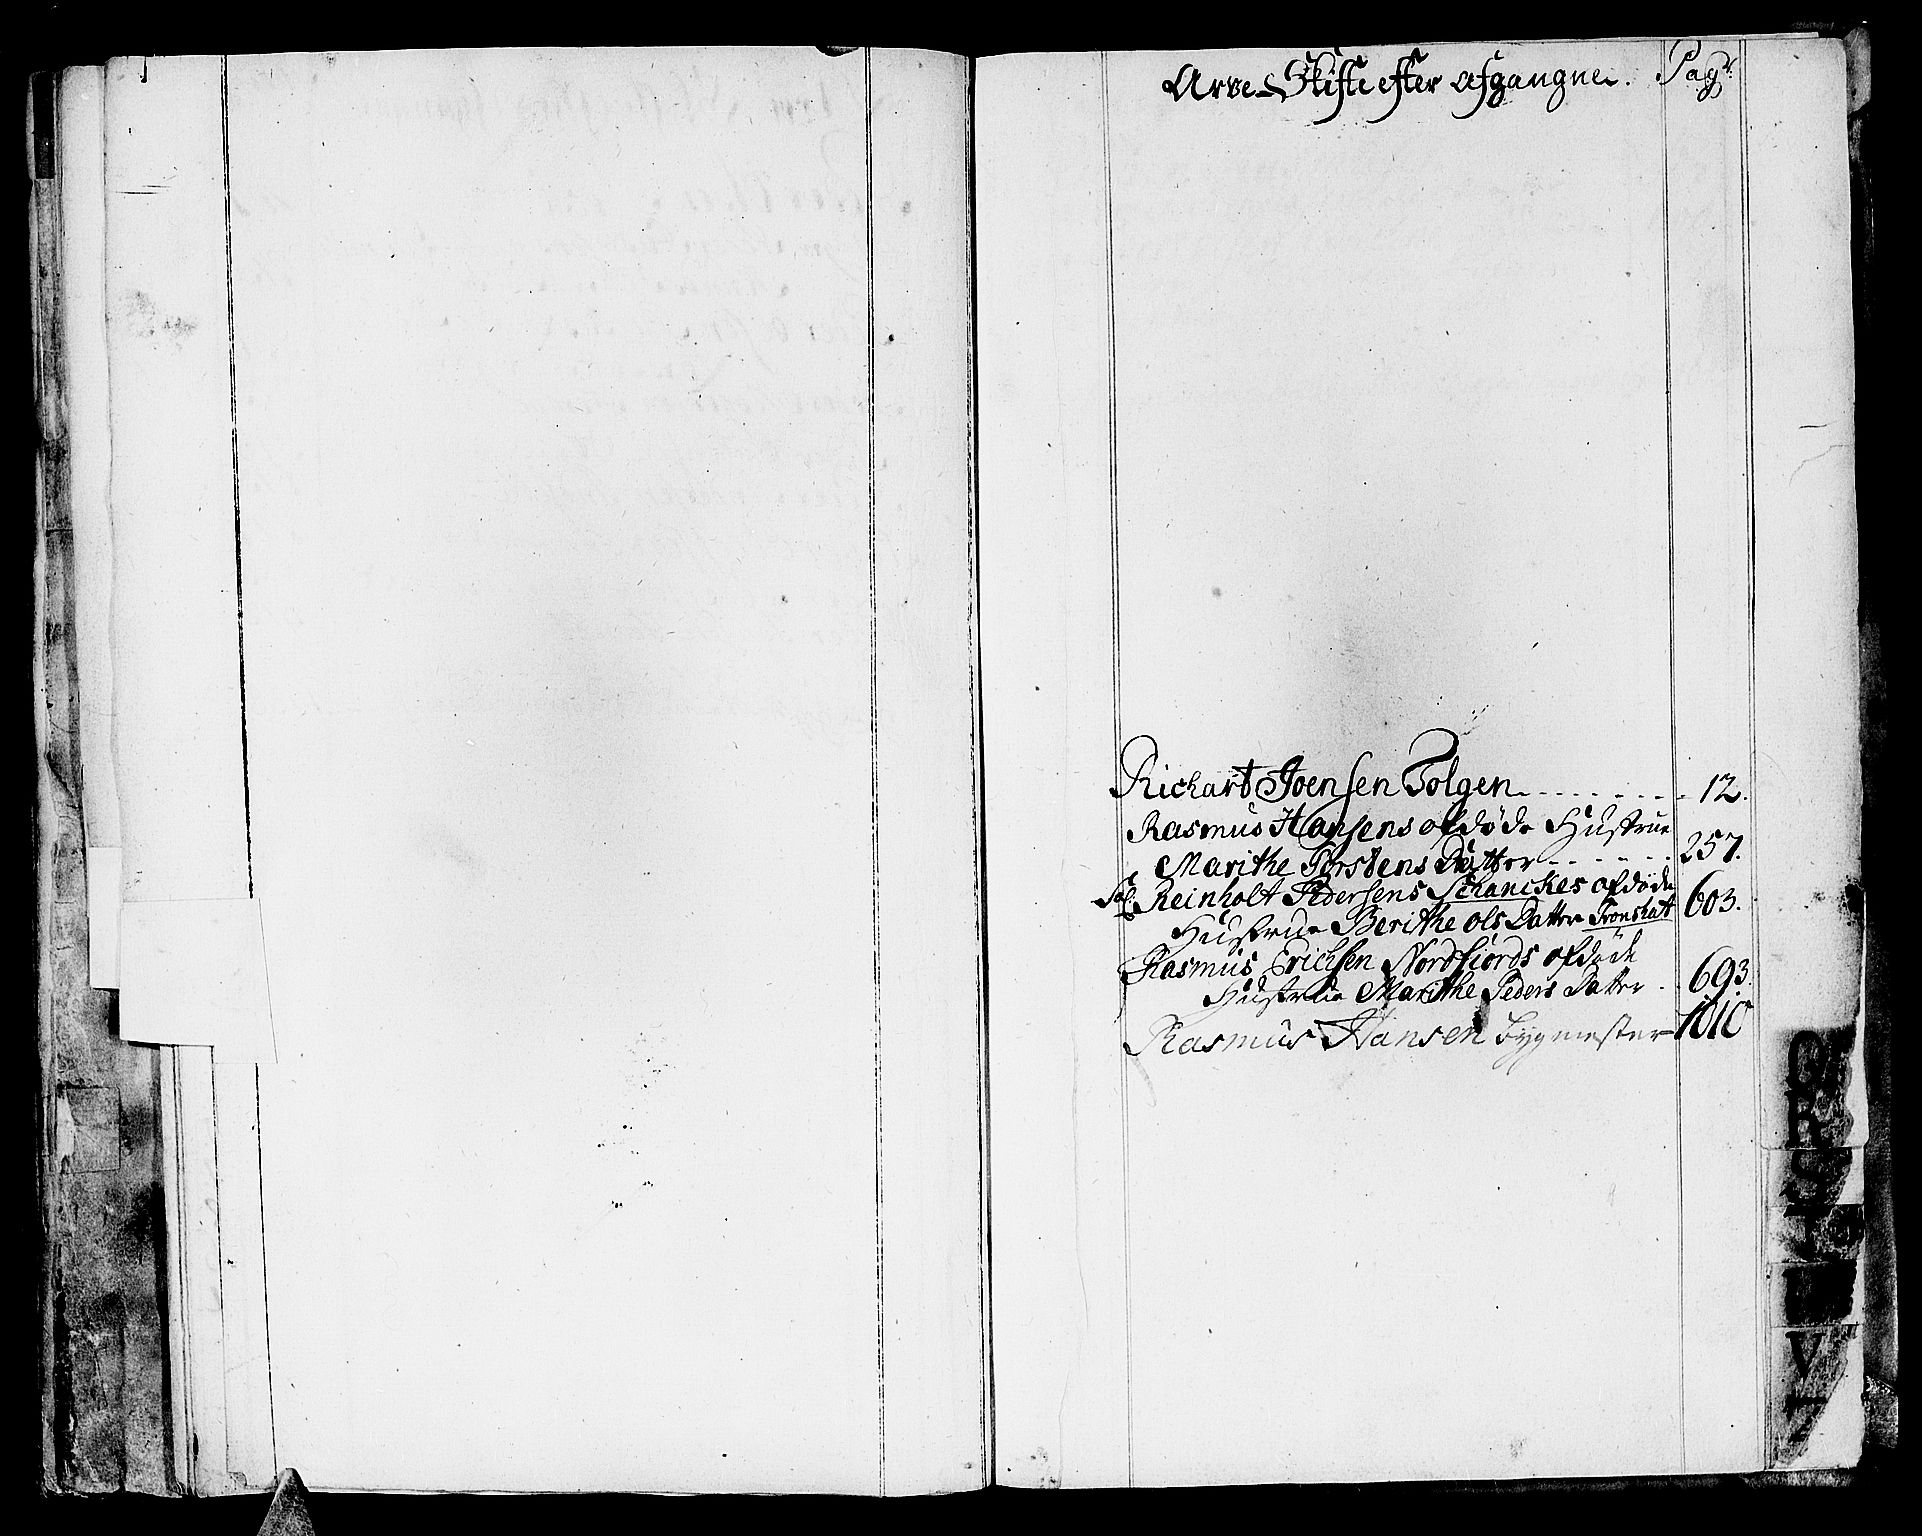 Arve Skifte efter Afgangne. Pag:
Richart Joensen Tolgen 12.
Rasmus Hansens afdøde Hustrue
Marithe Torstens Datter 257.
Sal: Reinholt Pedersens Schanckes afdøde
Hustrue Berithe Ols Datter Tronshat 603.
Rasmus Erichsen Nordfiords afdøde
Hustrue Marithe Peders Datter 693.
Rasmus Hansen bygmester 1010
Q
R
S
T
V